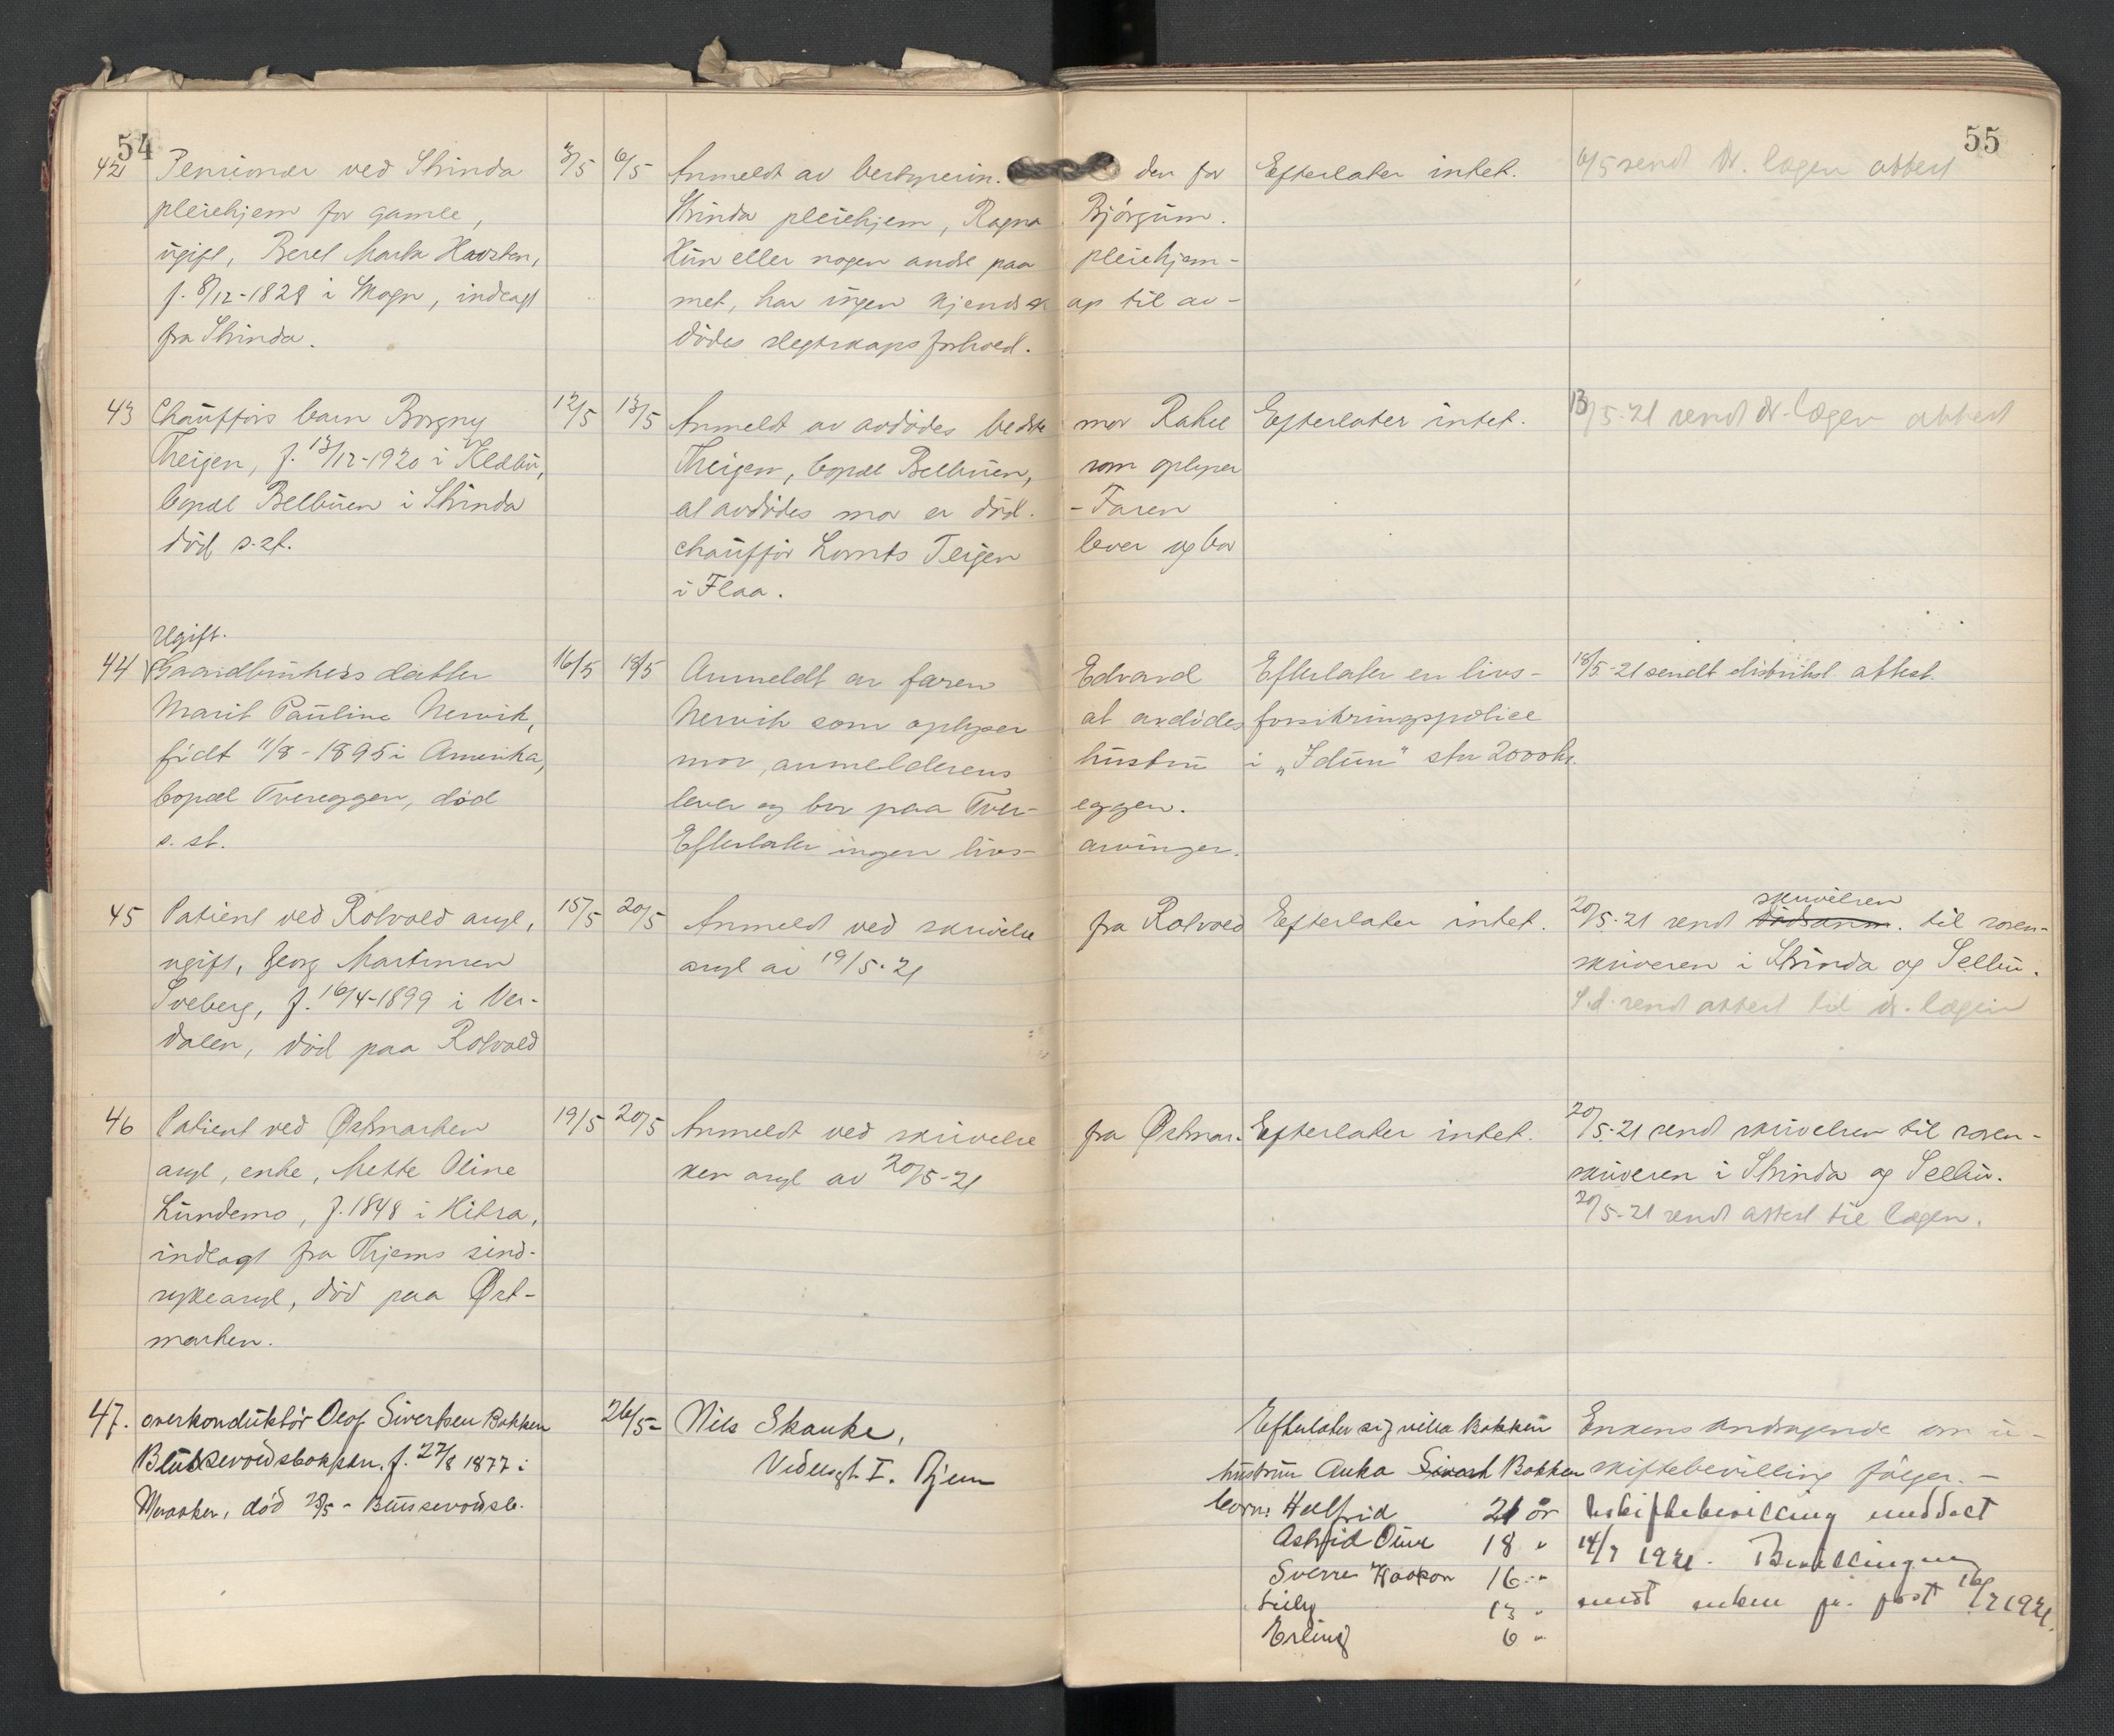 54
42 Pensioner ved Strinda
pleiehjem for gamle,
ugift, Beret Marta
f. 8/12-1828 i Skogn, indlagt
fra Strinda.
3/5 6/5
Anmeldt av bestyrerin. den for
Strinda pleiehjem, Ragna Bjørgum.
Hun eller nogen andre paa pleiehjem-
met, har ingen kjendskap til av-
dødes slegtskapsforhold.
43 Chaufførs barn Borgny
Theigen, f. 13/12-1920 i Klæbu,
bopæl Belbuen i Strinda
død s. st.
12/5 13/5
Anmeldt av avdødes bedstemor Rakel
Theigen, bopæl Belbuen, som oplyser
at avdødes mor er død. - Faren
chauffør Lorents Teigen lever og bor
i Flaa.
Ugift.
44 Gaardbrukers datter
Marit Pauline Nervik,
født 11/8-1895 i Amerika,
bopæl Tvereggen, død
s. st.
16/5 18/5
Anmeldt av faren Edvard
Nervik som oplyser at avdødes
mor, anmelderens hustru
lever og bor paa Tver- eggen.
Efterlater ingen livs- arvinger.
45 Patient ved Rotvold asyl,
ugift, Georg Martinsen
Sveberg, f. 16/4-1899 i Ver-
dalen, død paa Rotvold
18/5 20/5
Anmeldt ved skrivelse fra Rotvold
asyl av 19/5-21
46 Patient ved Østmarken
asyl, enke, Mette Oline
Lundemo, f. 1848 i Hitra,
indlagt fra Thjems sind-
sykeasyl, død paa Øst-
marken.
19/5 20/5
Anmeldt ved skrivelse fra Østmar-
ken asyl av 20/5-21
47. overkonduktør Olof Sivertsen Bakken
f. 27/8 1877 i
Meraker, død 25/5 -
26/5 - Nils Skauke,
I. Thjem
55
Efterlater intet.
6/5 sendt dr. lægen attest
Efterlater intet.
13/5-21 sendt dr. lægen attest
Efterlater en livs-
forsikringspolice
i „Idun" stor 2000 kr.
18/5-21 sendt distriktsl. attest.
Efterlater intet.
skrivelsen
20/5-21 sendt dødsanm. til soren-
skriveren i Strinda og Selbu.
S.d. sendt attest til dr. lægen
Efterlater intet.
20/5-21 sendt skrivelsen til soren-
skriveren i Strinda og Selbu.
20/5-21 sendt attest til lægen.
Efterlater sig villa Bakken
hustru Anka Bakken
barn: Halfrid 21 år
Astrid Oline 18 "
Sverre Haakon 16 "
Lilly 13 "
Erling 6 "
Enkens andragende om u-
skiftebevilling følger. -
Uskiftebevilling meddelt
14/7 1921. Bevillingen
sendt enken pr. post 16/7 1921.